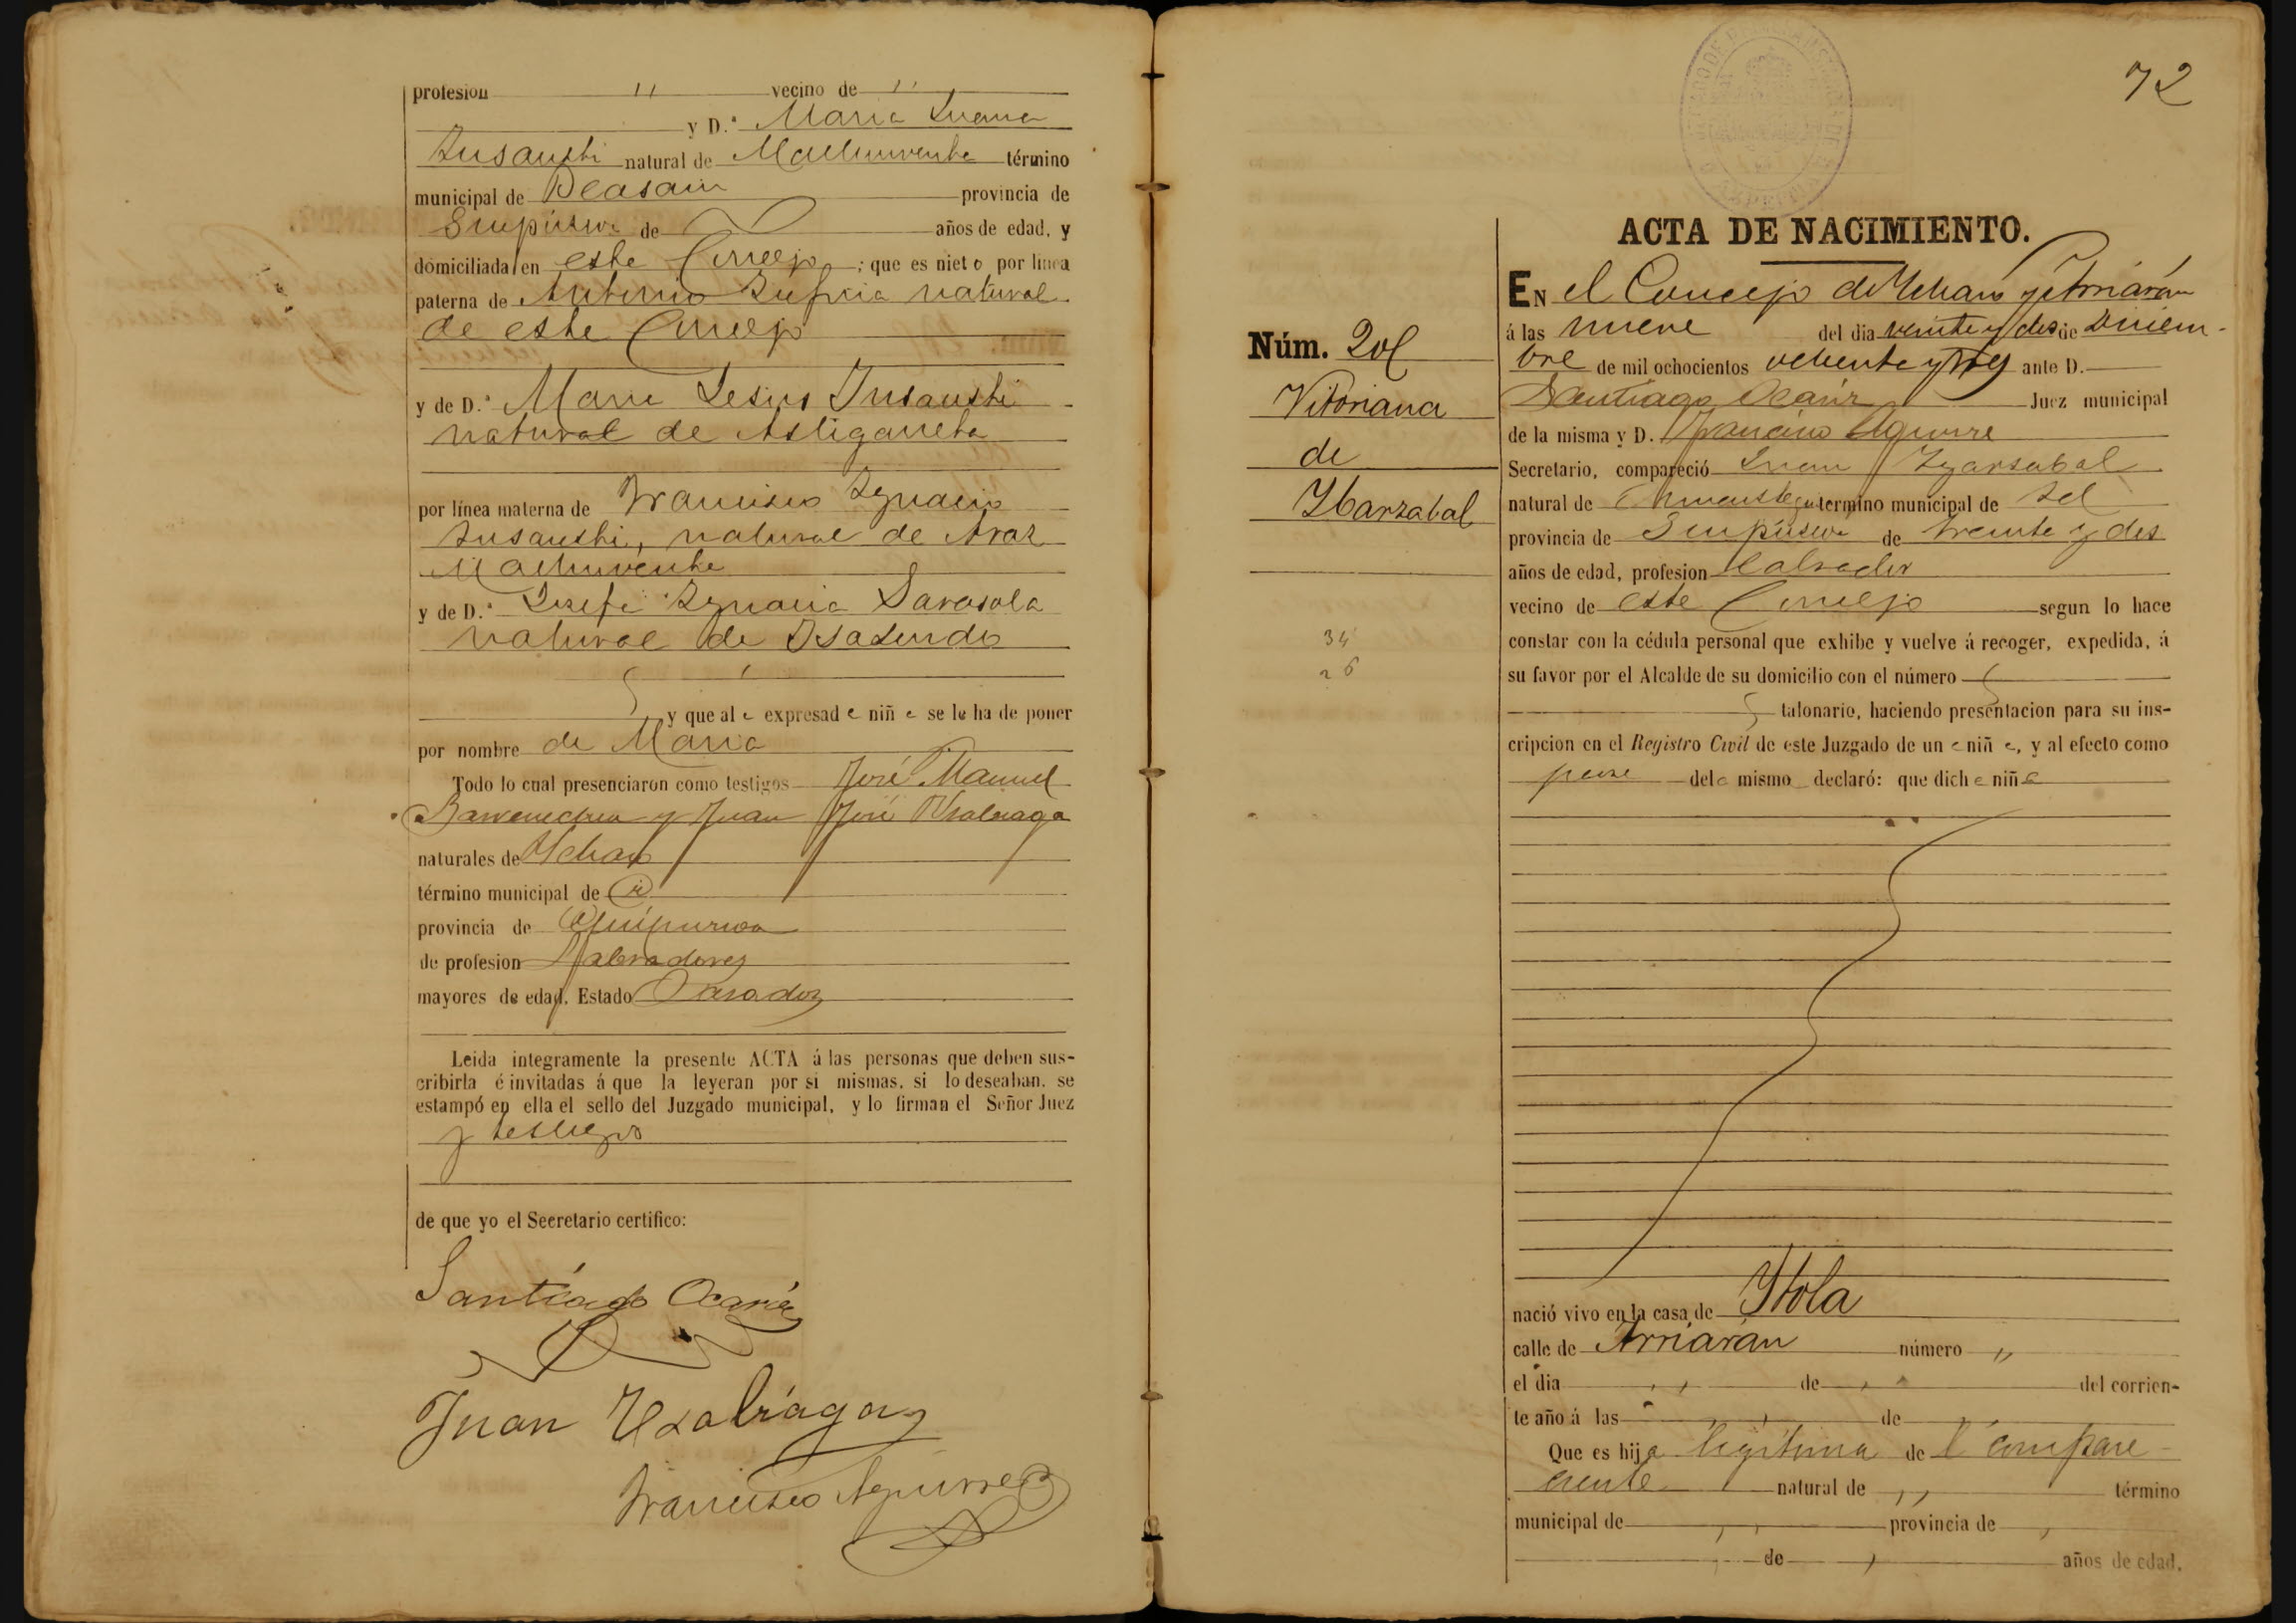 profesion " vecino de "
y D.ª Maria Juana
Insausti natural de Machinventa término
municipal de Beasain provincia de
Guipúzcoa de años de edad, y
domiciliada en este Concejo; que es nieto por línea
paterna de Antonio natural
de este Concejo
y de D.ª Maria Jesus Insausti
natural de Astigarreta
por línea materna de Francisco Ignacio
Insausti, natural de Araz
Machinventa
y de D.ª Josefa Ignacia Sarasola
natural de Isasondo
y que al a expresad a niñ a se le ha de poner
por nombre de Maria
Todo lo cual presenciaron como testigos José Manuel
Barrenechea y Juan José Usalriaga
naturales de Ychaso
término municipal de id
provincia de Guipuzcoa
de profesion Labradores
mayores de edad. Estado Casados
Leida integramente la presente ACTA á las personas que deben sus-
cribirla é invitadas á que la leyeran por si mismas, si lo deseaban, se
estampó en ella el sello del Juzgado municipal, y lo firman el Señor Juez
y testigos
de que yo el Secretario certifico:
Santiago Ocariz
Juan Usalriaga
Francisco Aguirre
72
ACTA DE NACIMIENTO.
Núm. 201
Vitoriana
de
Ybarzabal
34
26
EN el Concejo de Ychaso y Arriarán
á las nueve del dia veinte y dos de Diciem-
bre de mil ochocientos ochenta y tres ante D.
Santiago Ocariz Juez municipal
de la misma y D. Francisco Aguirre
Secretario, compareció Juan Ygarzabal
natural de Ormaiztegui término municipal de id
provincia de Guipúzcoa de treinta y dos
años de edad, profesion Labrador
vecino de este Concejo segun lo hace
constar con la cédula personal que exhibe y vuelve á recoger, expedida, á
su favor por el Alcalde de su domicilio con el número
talonario, haciendo presentacion para su ins-
cripcion en el Registro Civil de este Juzgado de un a niñ a, y al efecto como
padre del a mismo declaró: que dich a niñ a
nació vivo en la casa de Ytola
calle de Arriarán número "
el dia " de " del corrien-
te año á las " de
Que es hij a legítima de l compare-
ciente natural de " término
municipal de " provincia de "
" de " años de edad,